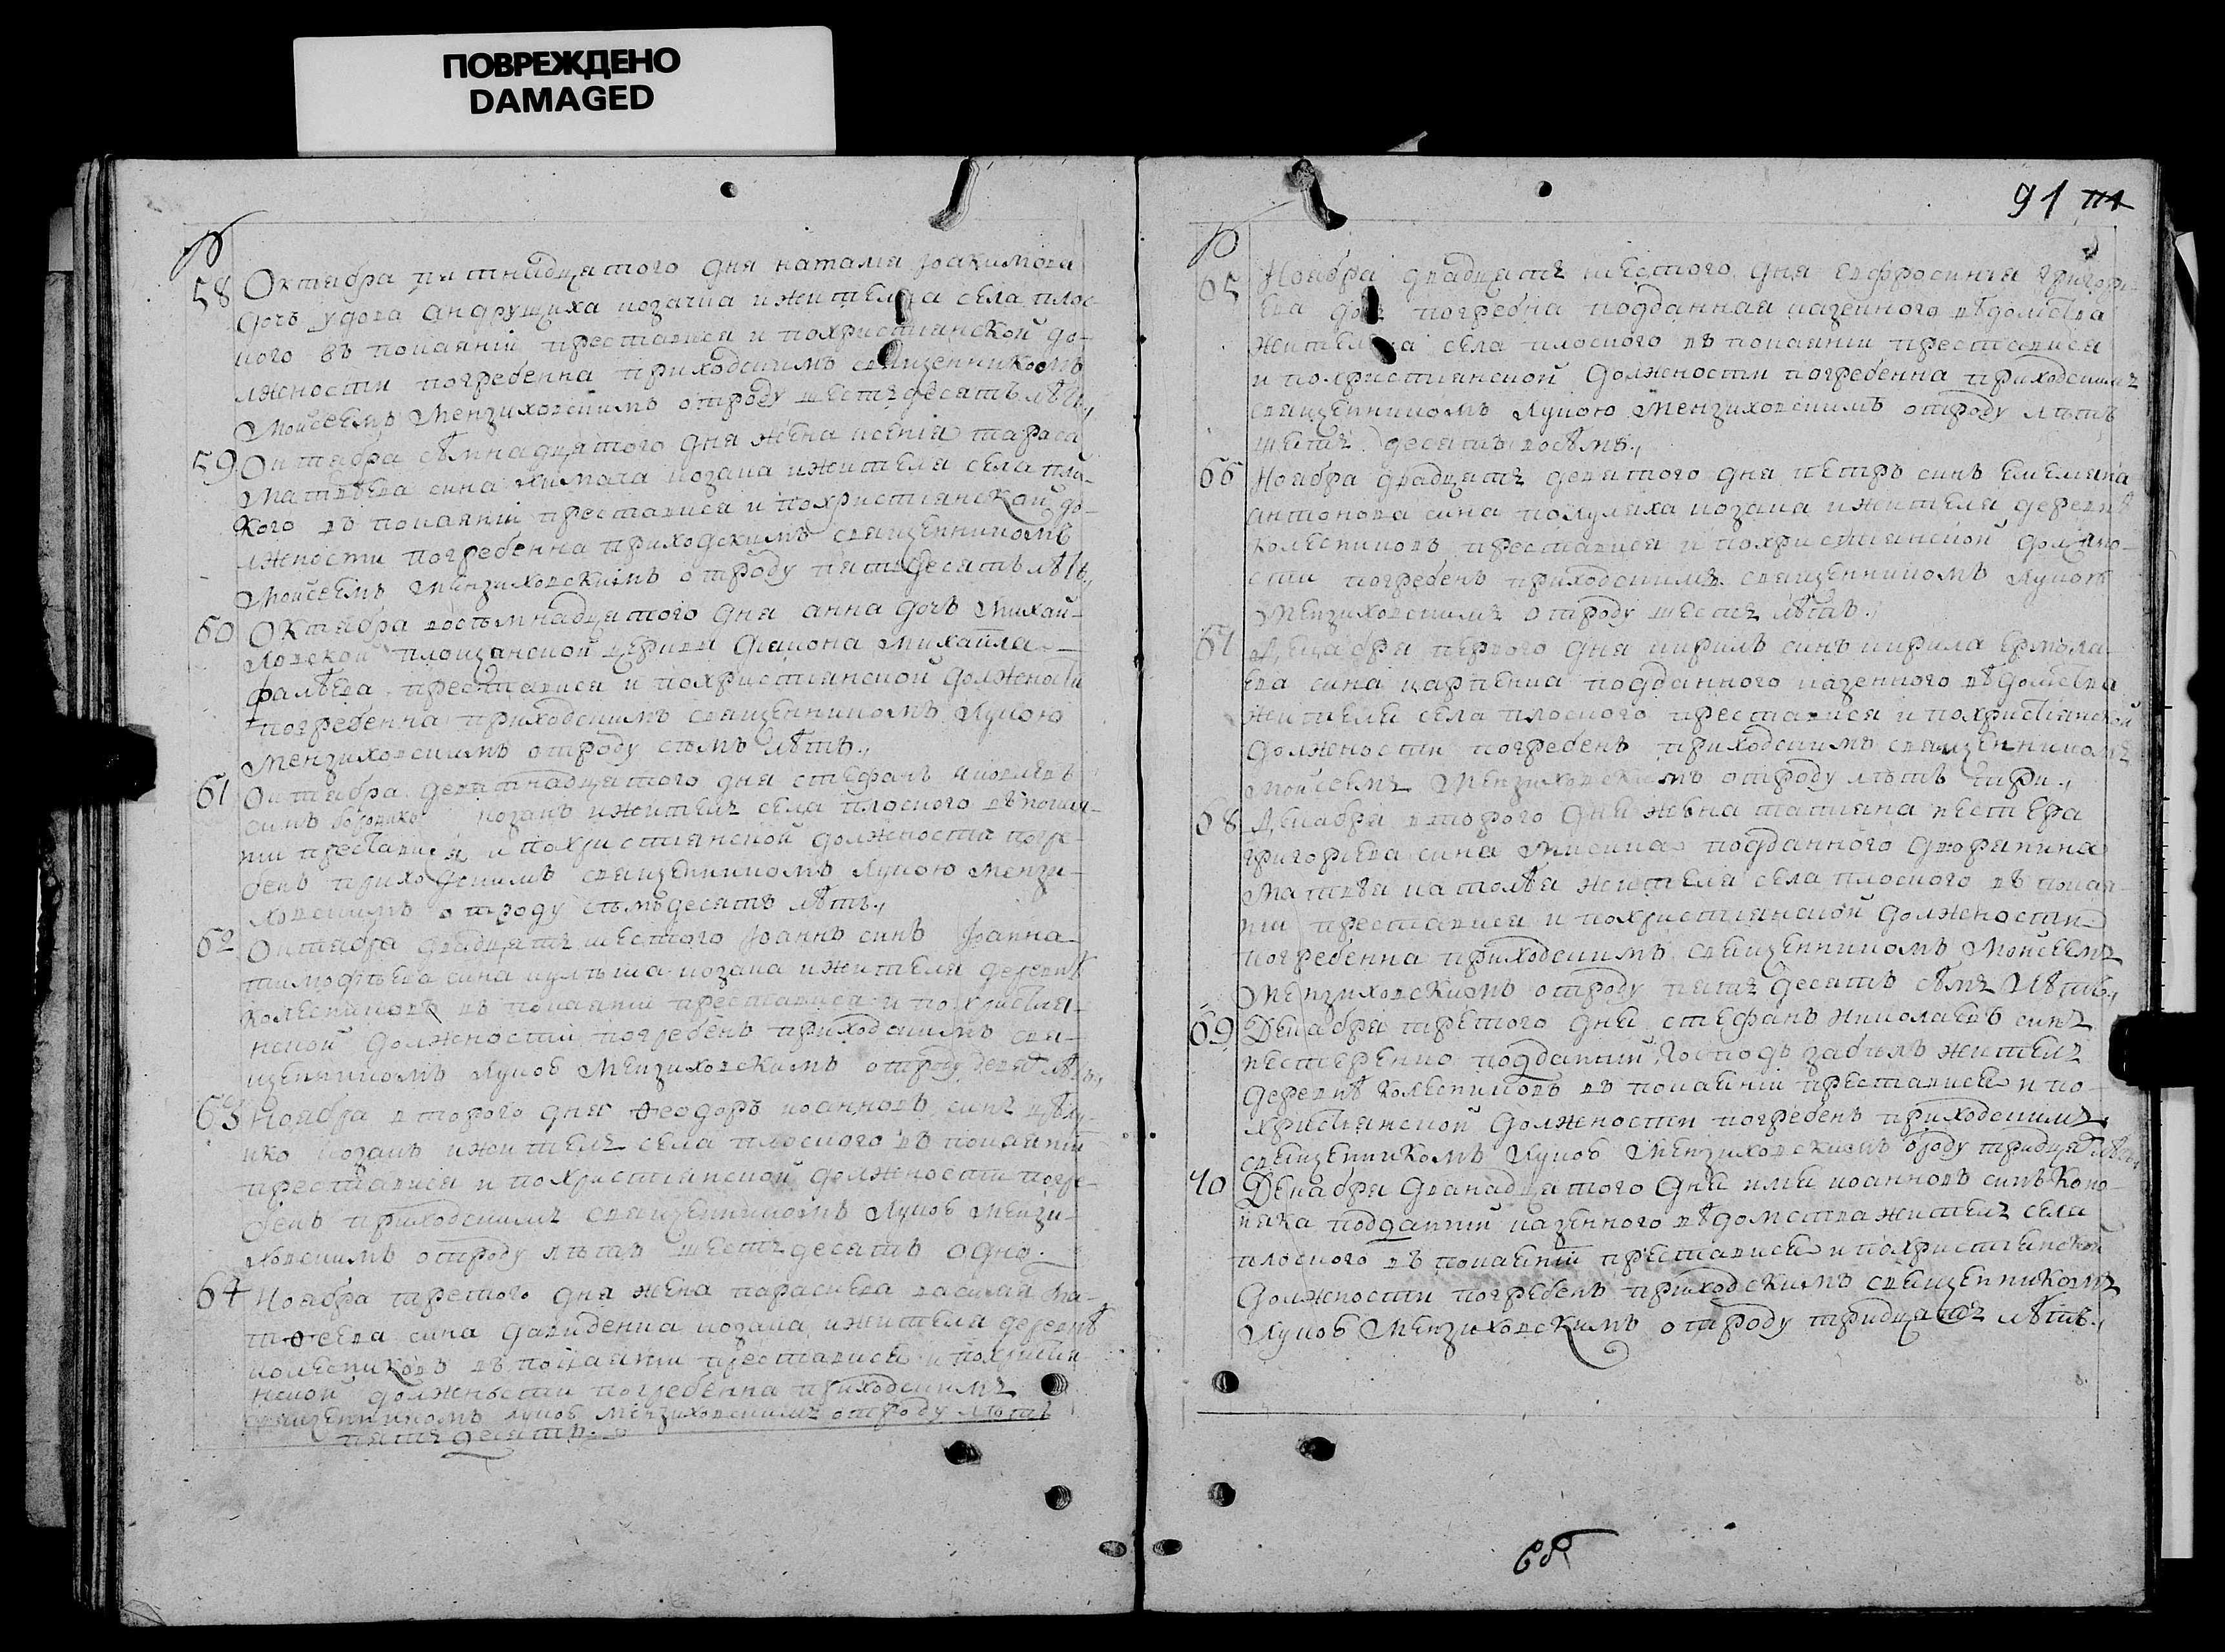 ПОВРЕЖДЕНО
DAMAGED
58 Октабра пятнадцятого дня наталия Іоакимова
дочь удова андрущиха козачка и жителка села плос-
кого въ покаянїи преставися и похристіанской до-
лжности погребенна приходскимъ священникомъ
Мойсеемъ Мензиховскимъ отроду шестъдесятъ лѣтъ,
59 Октабра сѣмнадцятого дня жена ксенія тараса
Матвѣева сина козака и жителя села пло-
кого въ покаянїи преставися и похристіанской до-
лжности погребенна приходскимъ священникомъ
Мойсеемъ Мензиховскимъ отроду пятъдесятъ лѣтъ,
60 Октабра восъмнадцятого дня анна дочъ Михай-
ловской площанской церкви диякона михаила
преставися и похристіанской должности
погребенна приходскимъ священникомъ Лукою
Мензиховскимъ отроду съмъ лѣтъ,
61 Октабра деватнадцятого дня стефанъ яковлевъ
синъ козакъ и жителъ села плоского въ покая-
нїи преставися и похристіанской должности погре-
бенъ приходскимъ священникомъ Лукою Мензи-
ховскимъ отроду съмъдесятъ лѣтъ,
62 Октабра двадцятъ шестого Іоаннъ синъ Іоанна
тимофѣева сина козака и жителя деревнѣ
Колесниковъ въ покаянїи преставися и похристїя-
нской должности погребенъ приходскимъ свя-
щенникомъ Лукоѣ Мензиховскимъ отроду
63 Ноабра второго дня Ѳеодоръ иоанновъ синъ
козакъ и жителъ села плоского въ покаянїи
преставися и похристіанской должности погре-
бенъ приходскимъ священникомъ Лукоѣ Мензи-
ховскимъ отроду лѣтъ шестъдесятъ одно.
64 Ноабра третого дня жена параскева василия Ма-
тѳеева сина давиденка козака и жителя деревнѣ
колесниковъ въ покаянїи преставися и похристїя
нской должности погребенна приходскимъ
священникомъ Лукоѣ Мензиховскимъ отроду лѣтъ
пятъ десятъ.
91
65 Ноабра двадцятъ шестого дня евфросиния григори-
ева дочъ погребна подданная казенного вѣдомства
жителка села плоского въ покаянїи преставися
и похристіанской должности погребенна приходскимъ
священникомъ Лукою Мензиховскимъ отроду лѣтъ
шестъ десятъ восѣмъ,
66 Ноабра двадцятъ деватого дня петръ синъ емелияна
антонова сина козака и жителя деревнѣ
колесниковъ преставися и похристіанской должно-
сти погребенъ приходскимъ священникомъ Лукоѣ
Мензиховскимъ отроду шестъ лѣтъ,
67 Декабря первого дня кирилъ синъ кирила ермола-
ева сина карпенка подданного казенного вѣдомства
жителя села плоского преставися и похристіанской
должности погребенъ приходскимъ священникомъ
Мойсеемъ Мензиховскимъ отроду лѣтъ три,
68 Декабря второго дня жена татияна нестера
григориева сина подданного дворянина
Матвѣя жителя села плоского въ покая-
нїи преставися и похристіанской должности
погребенна приходскимъ священникомъ Мойсеемъ
Мензиховскимъ отроду пятъ десятъ сѣмъ лѣтъ,
69 Декабря третого дня стефанъ николаевъ синъ
нестеренко подданнїй жителъ
деревнѣ Колесниковъ въ покаянїи преставися и по-
христіанской должности погребенъ приходскимъ
священникомъ Лукоѣ Мензиховскимъ отроду тридцатъ лѣтъ
70 Декабря дванадцятого дня иоанновъ синъ
подданнїй казенного вѣдомства жителъ села
плоского въ покаянїи преставися и похристіанской
должности погребенъ приходскимъ священникомъ
Лукоѣ Мензиховскимъ отроду тридцатъ лѣтъ,